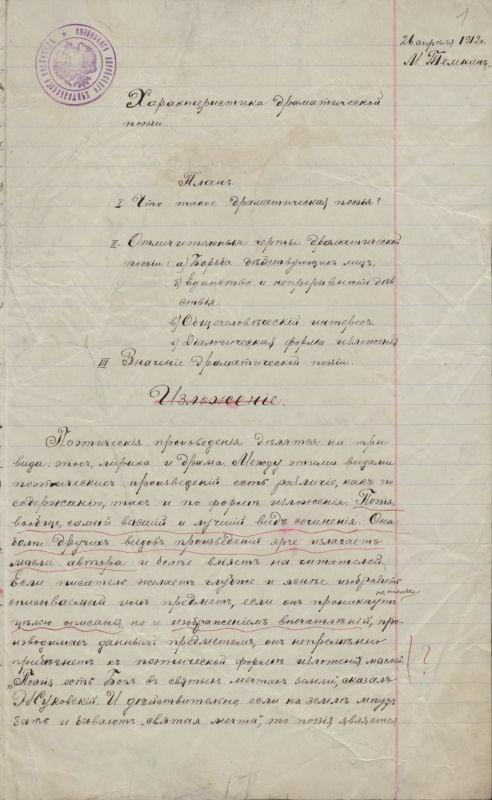 1
26 апрѣля 1912 г.
М. Темкинъ
Характеристика драматической
поэзіи.
Планъ.
I Что такое драматическая поэзія?
II. Отличительныя черты драматической
поэзіи: а) Борьба дѣйствующихъ лицъ.
б) Единство и непрерывность дѣй-
ствія.
в) Общечеловѣческій интересъ.
г) Діалогическая форма изложенія
III Значеніе драматической поэзіи.
Изложеніе.
Поэтическія произведенія дѣлятся на три
вида: эпосъ, лирика и драма. Между этими видами
поэтическихъ произведеній есть различіе, какъ по
содержанію, такъ и по формѣ изложенія. Поэзія,
вообще, самый высшій и лучшій видъ сочиненія. Она
болѣе другихъ видовъ произведенія ярче излагаетъ
мысли автора и болѣе вліяетъ на читателей.
Если писатель желаетъ глубже и яснѣе изобразить
описываемый имъ предметъ, если онъ проникнутъ не только
цѣлью описанія, но и изображеніемъ впечатлѣній, про-
изводимыхъ даннымъ предметомъ, онъ непремѣнно
прибѣгнетъ къ поэтической формѣ изложенія мыслей. ?
„Поэзія есть Богъ въ святыхъ мечтахъ земли", сказалъ
Жуковскій. И дѣйствительно, если на землѣ могутъ
быть и бываютъ „святыя мечты", то поэзія является